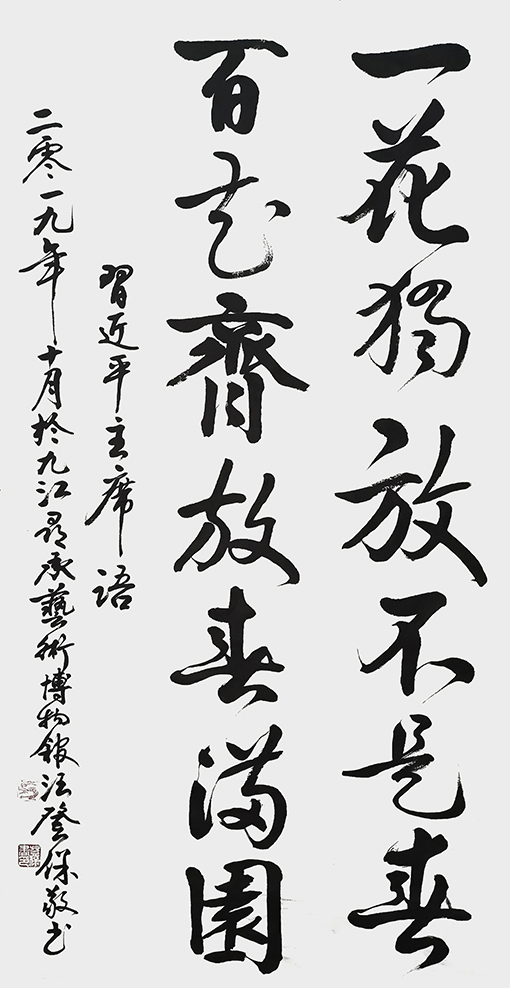 一花獨放不是春
百花齊放春滿園
習近平主席語
二零一九年十月於九江尋承藝術博物館汪登保敬书